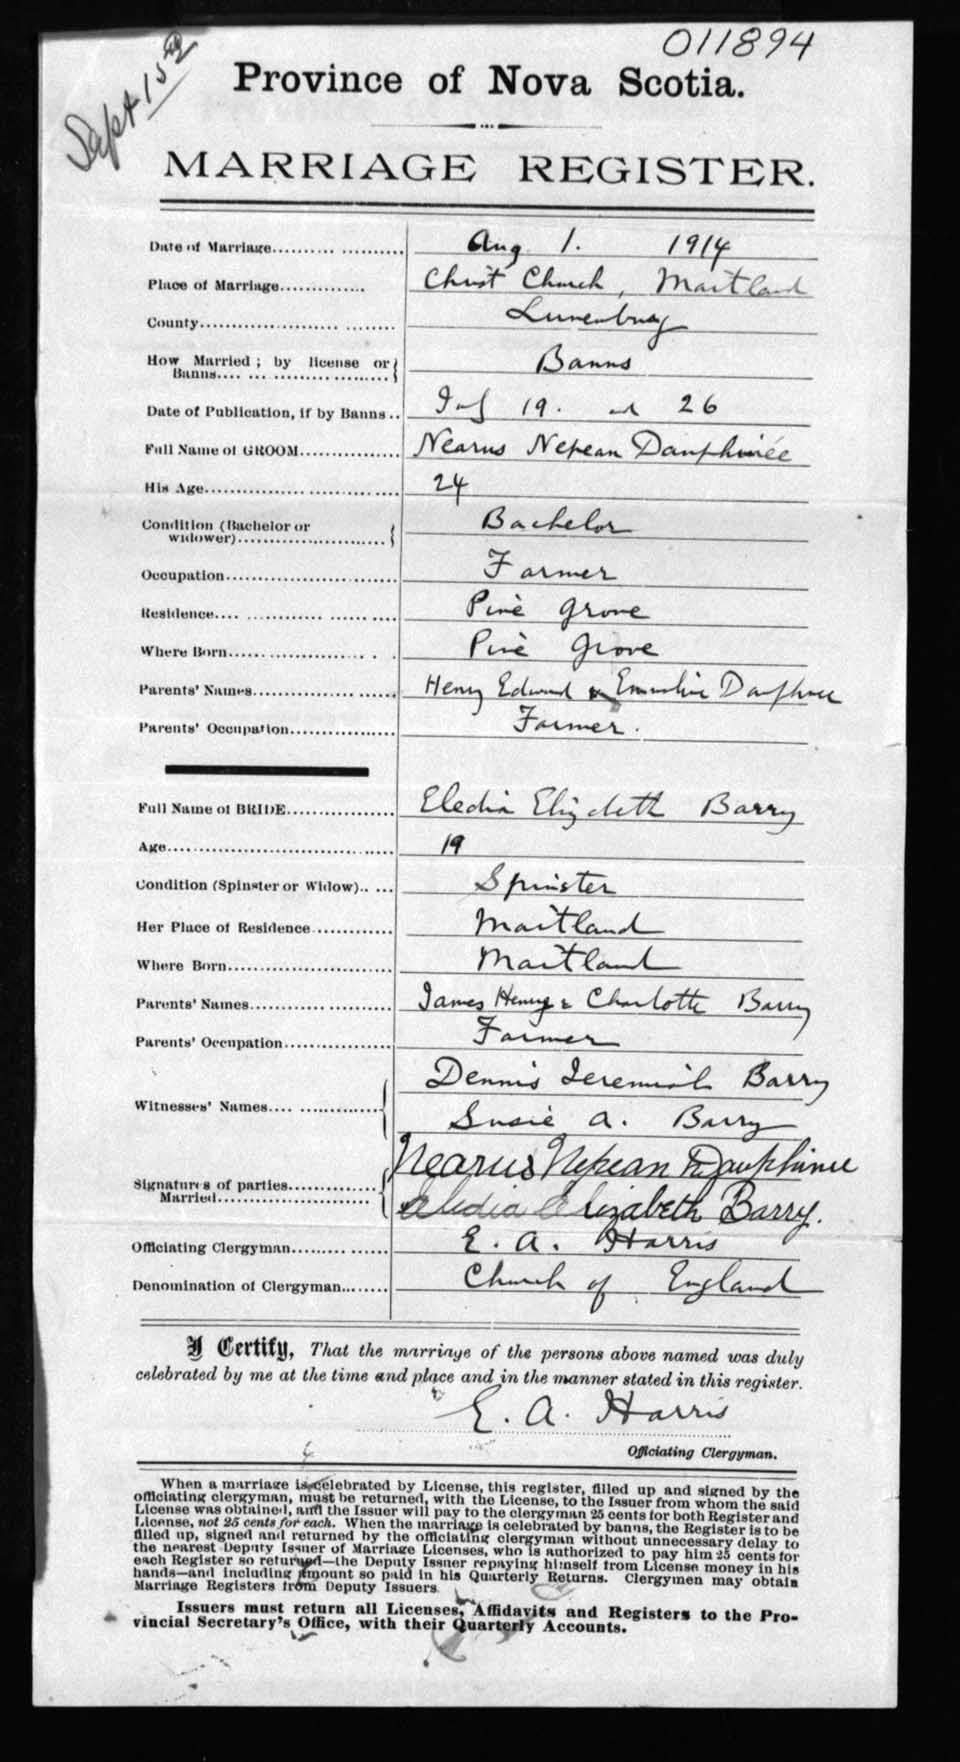 011894
Sept 15
Province of Nova Scotia.
MARRIAGE REGISTER.
Date of Marriage.................... Aug 1. 1914
Place of Marriage............. Christ Church, Maitland
County............................ Lunenburg
How Married ; by license or
Banns........................... Banns
Date of Publication, if by Banns.. 19. 26
Full Name of GROOM................ Nearus Nepean Dauphinée
His Age............................ 24
Condition (Bachelor or
widower)........................ Bachelor
Occupation............................ Farmer
Residence............................ Pine Grove
Where Born........................ Pine Grove
Parents' Names...................... Henry Edward & Emmeline Dauphinee
Parents' Occupation................. Farmer.
Full Name of BRIDE.................. Eledia Elizabeth Barry
Age.................................. 19
Condition (Spinster or Widow)..... Spinster
Her Place of Residence............. Maitland
Where Born......................... Maitland
Parents' Names..................... James Henry & Charlotte Barry
Parents' Occupation................. Farmer
Dennis Jeremiah Barry
Witnesses' Names...................
Susie A. Barry
Nearus Nepean Dauphinee
Signatures of parties..............
Married.......................
Eledia Elizabeth Barry.
Officiating Clergyman.............. E. A. Harris
Denomination of Clergyman......... Church of England
I Certify, That the marriage of the persons above named was duly
celebrated by me at the time and place and in the manner stated in this register.
E. A. Harris
Officiating Clergyman.
When a marriage is celebrated by License, this register, filled up and signed by the
officiating clergyman, must be returned, with the License, to the Issuer from whom the said
License was obtained, and the Issuer will pay to the clergyman 25 cents for both Register and
License, not 25 cents for each. When the marriage is celebrated by banns, the Register is to be
filled up, signed and returned by the officiating clergyman without unnecessary delay to
the nearest Deputy Issuer of Marriage Licenses, who is authorized to pay him 25 cents for
each Register so returned—the Deputy Issuer repaying himself from License money in his
hands—and including amount so paid in his Quarterly Returns. Clergymen may obtain
Marriage Registers from Deputy Issuers
Issuers must return all Licenses, Affidavits and Registers to the Pro-
vincial Secretary's Office, with their Quarterly Accounts.